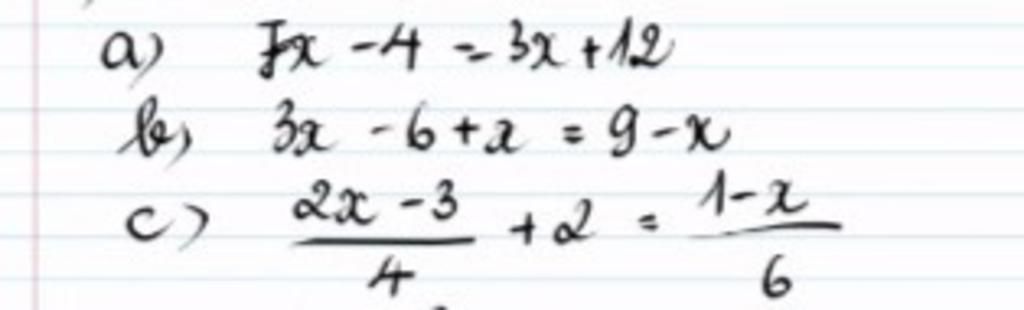 a) 7x - 4 = 3x + 12
b) 3x - 6 + x = 9 - x
c) (2x - 3)/4 + 2 = (1 - x)/6